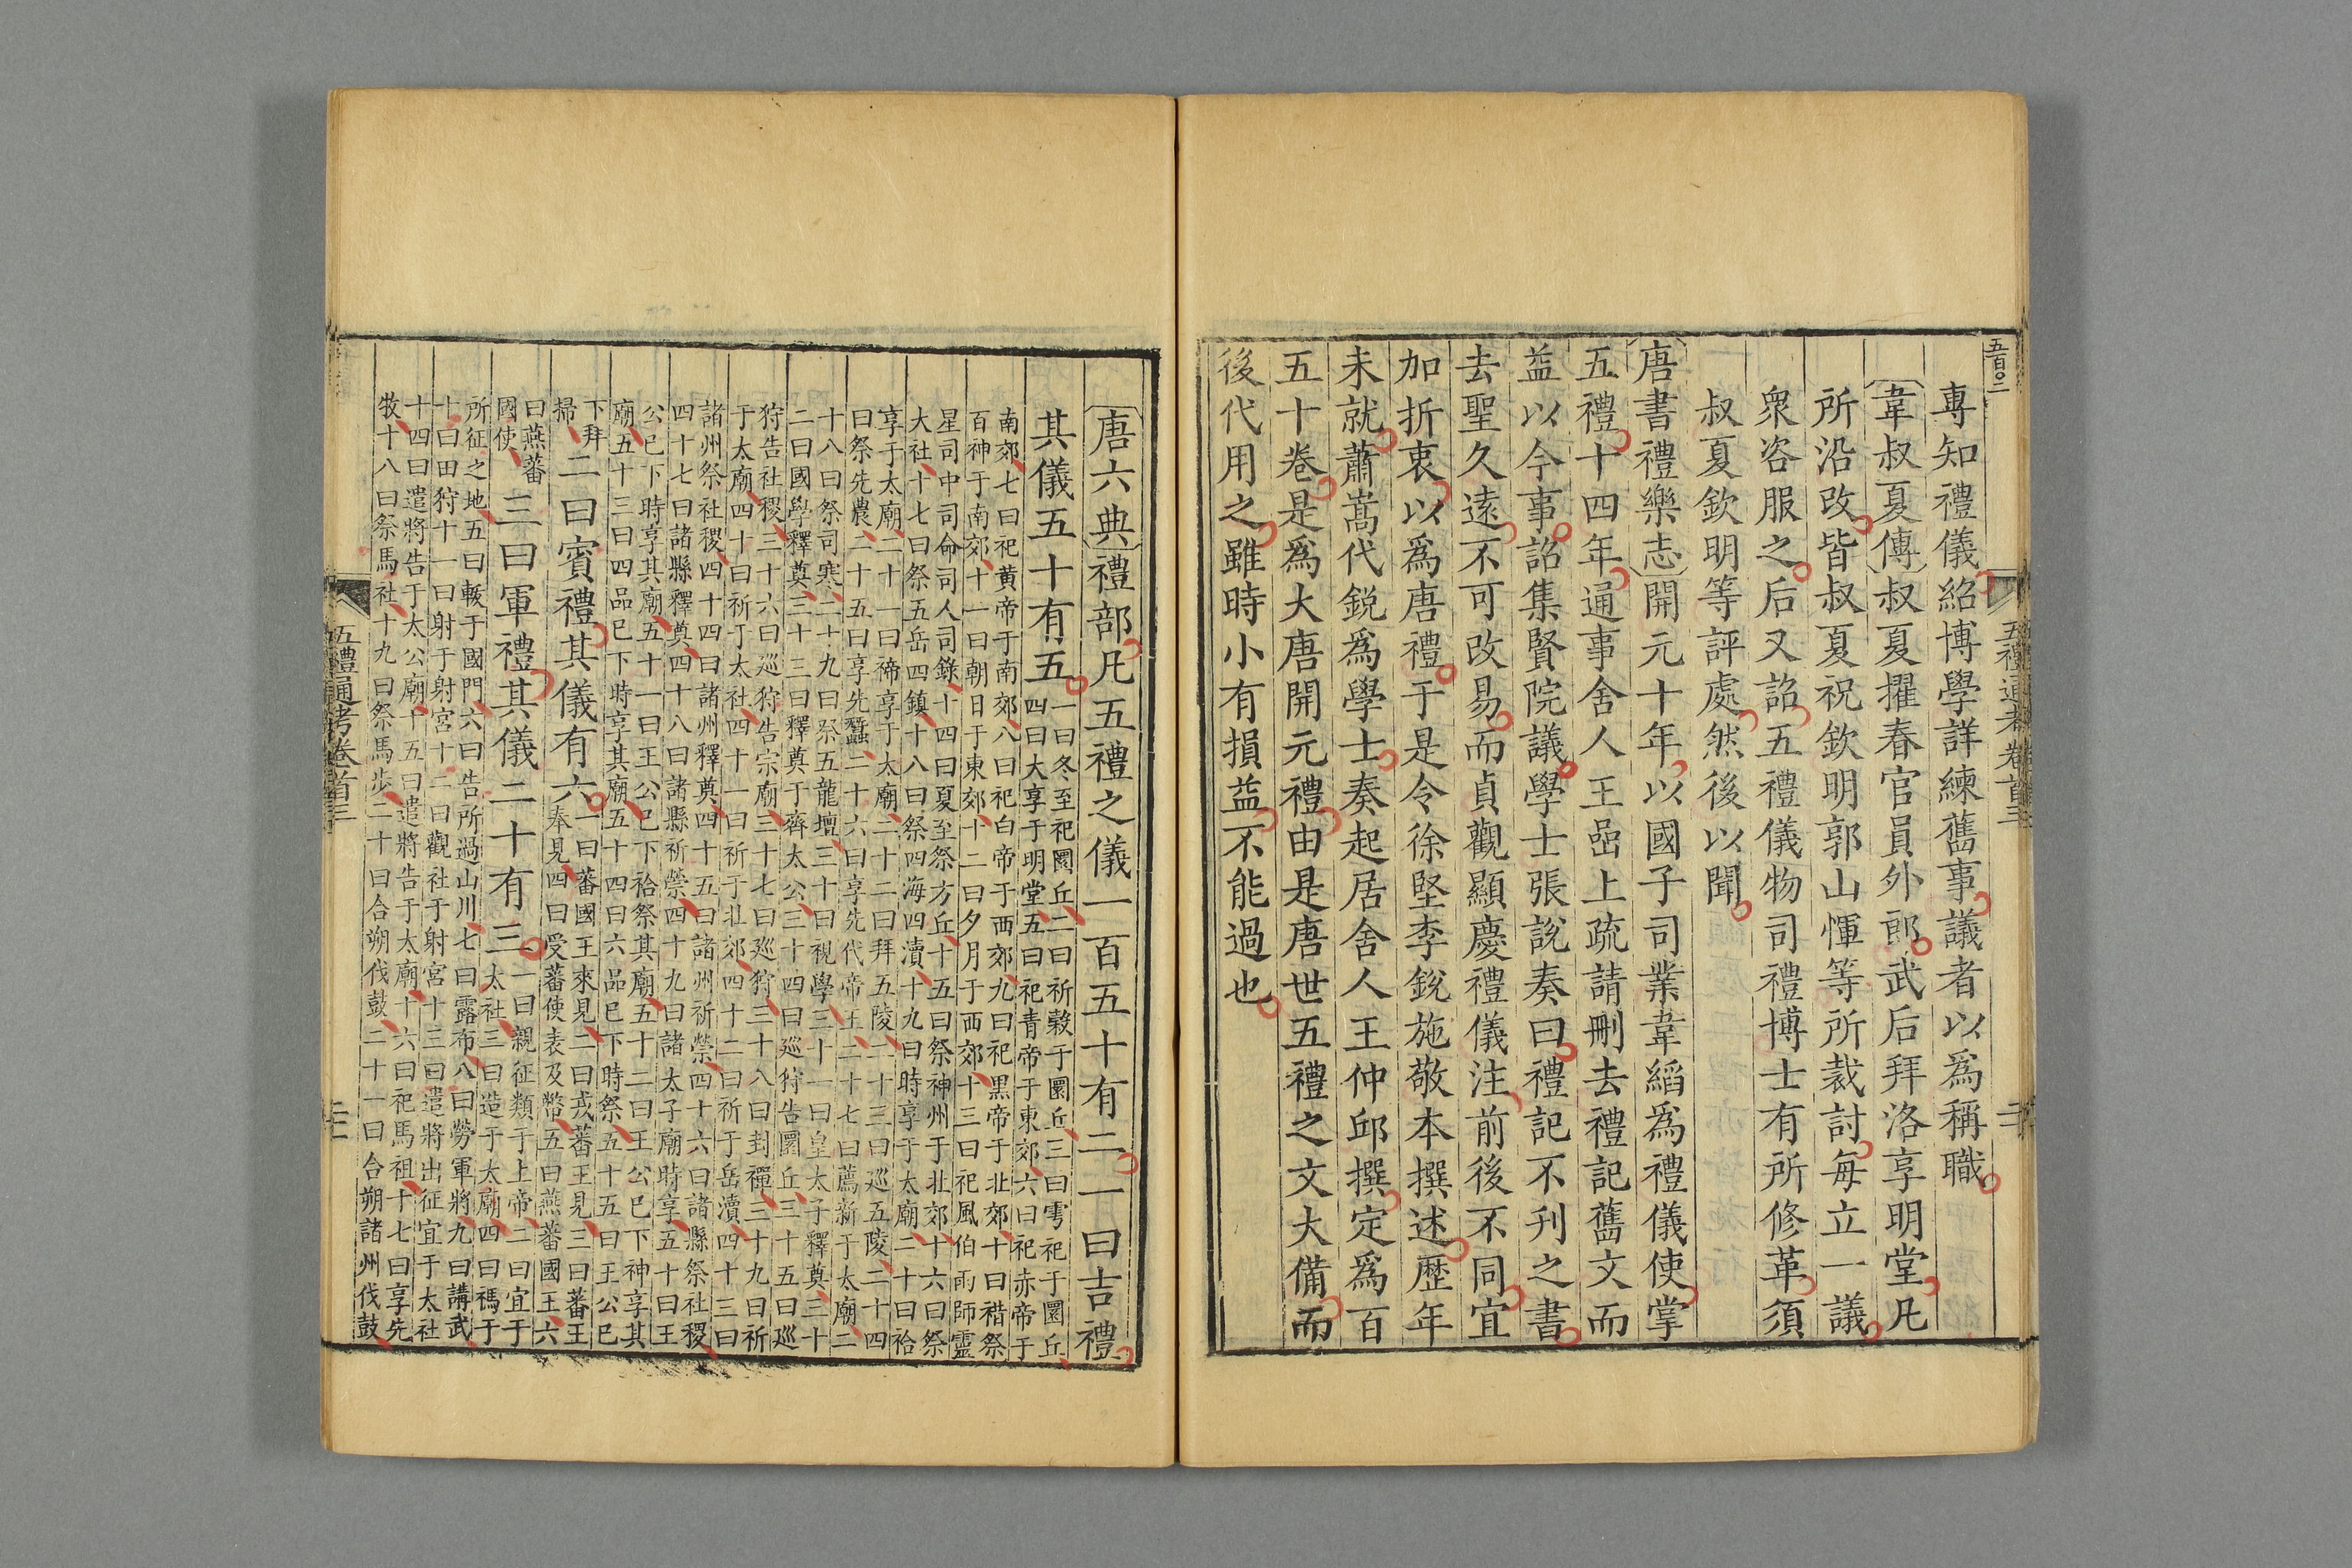 五百○二
五禮通考卷首三
專知禮儀紹博學詳練舊事議者以爲稱職
韋叔夏傳叔夏擢春官員外郎武后拜洛享明堂凡
所沿改皆叔夏祝欽明郭山惲等所裁討每立一議
衆咨服之后又詔五禮儀物司禮博士有所修革須
叔夏欽明等評處然後以聞
唐書禮樂志開元十年以國子司業韋縚爲禮儀使掌
五禮十四年通事舍人王嵒上疏請刪去禮記舊文而
益以今事詔集賢院議學士張說奏曰禮記不刊之書
去聖久遠不可改易而貞觀顯慶禮儀注前後不同宜
加折衷以爲唐禮于是令徐堅李銳施敬本撰述歷年
未就蕭嵩代銳爲學士奏起居舍人王仲邱撰定爲百
五十卷是爲大唐開元禮由是唐世五禮之文大備而
後代用之雖時小有損益不能過也
唐六典禮部凡五禮之儀一百五十有二一曰吉禮
其儀五十有五
一曰冬至祀圜丘二曰祈榖于圜丘三曰雩祀于圜丘
四曰大享于明堂五曰祀青帝于東郊六曰祀赤帝于
南郊七曰祀黄帝于南郊八曰祀白帝于西郊九曰祀黑帝于北郊十曰禇祭
百神于南郊十一曰朝日于東郊十二曰夕月于西郊十三曰祀風伯雨師靈
星司中司命司人司錄十四曰夏至祭方丘十五曰祭神州于北郊十六曰祭
大社十七曰祭五岳四鎮十八曰祭四海四瀆十九曰時享于太廟二十曰祫
享于太廟二十一曰禘享于太廟二十二曰拜五陵二十三曰巡五陵二十四
曰祭先農二十五曰享先蠶二十六曰享先代帝王二十七曰薦新于太廟二
十八曰祭司寒二十九曰祭五龍壇三十曰視學三十一曰皇太子釋奠三十
二曰國學釋奠三十三曰釋奠于齊太公三十四曰巡狩告圜丘三十五曰巡
狩告社稷三十六曰巡狩告宗廟三十七曰巡狩三十八曰封禪三十九曰祈
于太廟四十曰祈于太社四十一曰祈于北郊四十二曰祈于岳瀆四十三曰
諸州祭社稷四十四曰諸州釋奠四十五曰諸州祈禜四十六曰諸縣祭社稷
四十七曰諸縣釋奠四十八曰諸縣祈禜四十九曰諸太子廟時享五十曰王
公已下時享其廟五十一曰王公已下祫祭其廟五十二曰王公已下神享其
廟五十三曰四品已下時享其廟五十四曰六品已下時祭五十五曰王公已
下拜
掃
二曰賓禮其儀有六
一曰蕃國王來見二曰戎蕃王見三曰蕃王
奉見四曰受蕃使表及幣五曰燕蕃國王六
曰燕蕃
國使
三曰軍禮其儀二十有三
一曰親征類于上帝二曰宜于
太社三曰造于太廟四曰禡于
所征之地五曰軷于國門六曰告所過山川七曰露布八曰勞軍將九曰講武
十曰田狩十一曰射于射宮十二曰觀社于射宮十三曰遣將出征宜于太社
十四曰遣將告于太公廟十五曰遣將告于太廟十六曰祀馬祖十七曰享先
牧十八曰祭馬社十九曰祭馬步二十曰合朔伐鼓二十一曰合朔諸州伐鼓
五禮通考卷首三